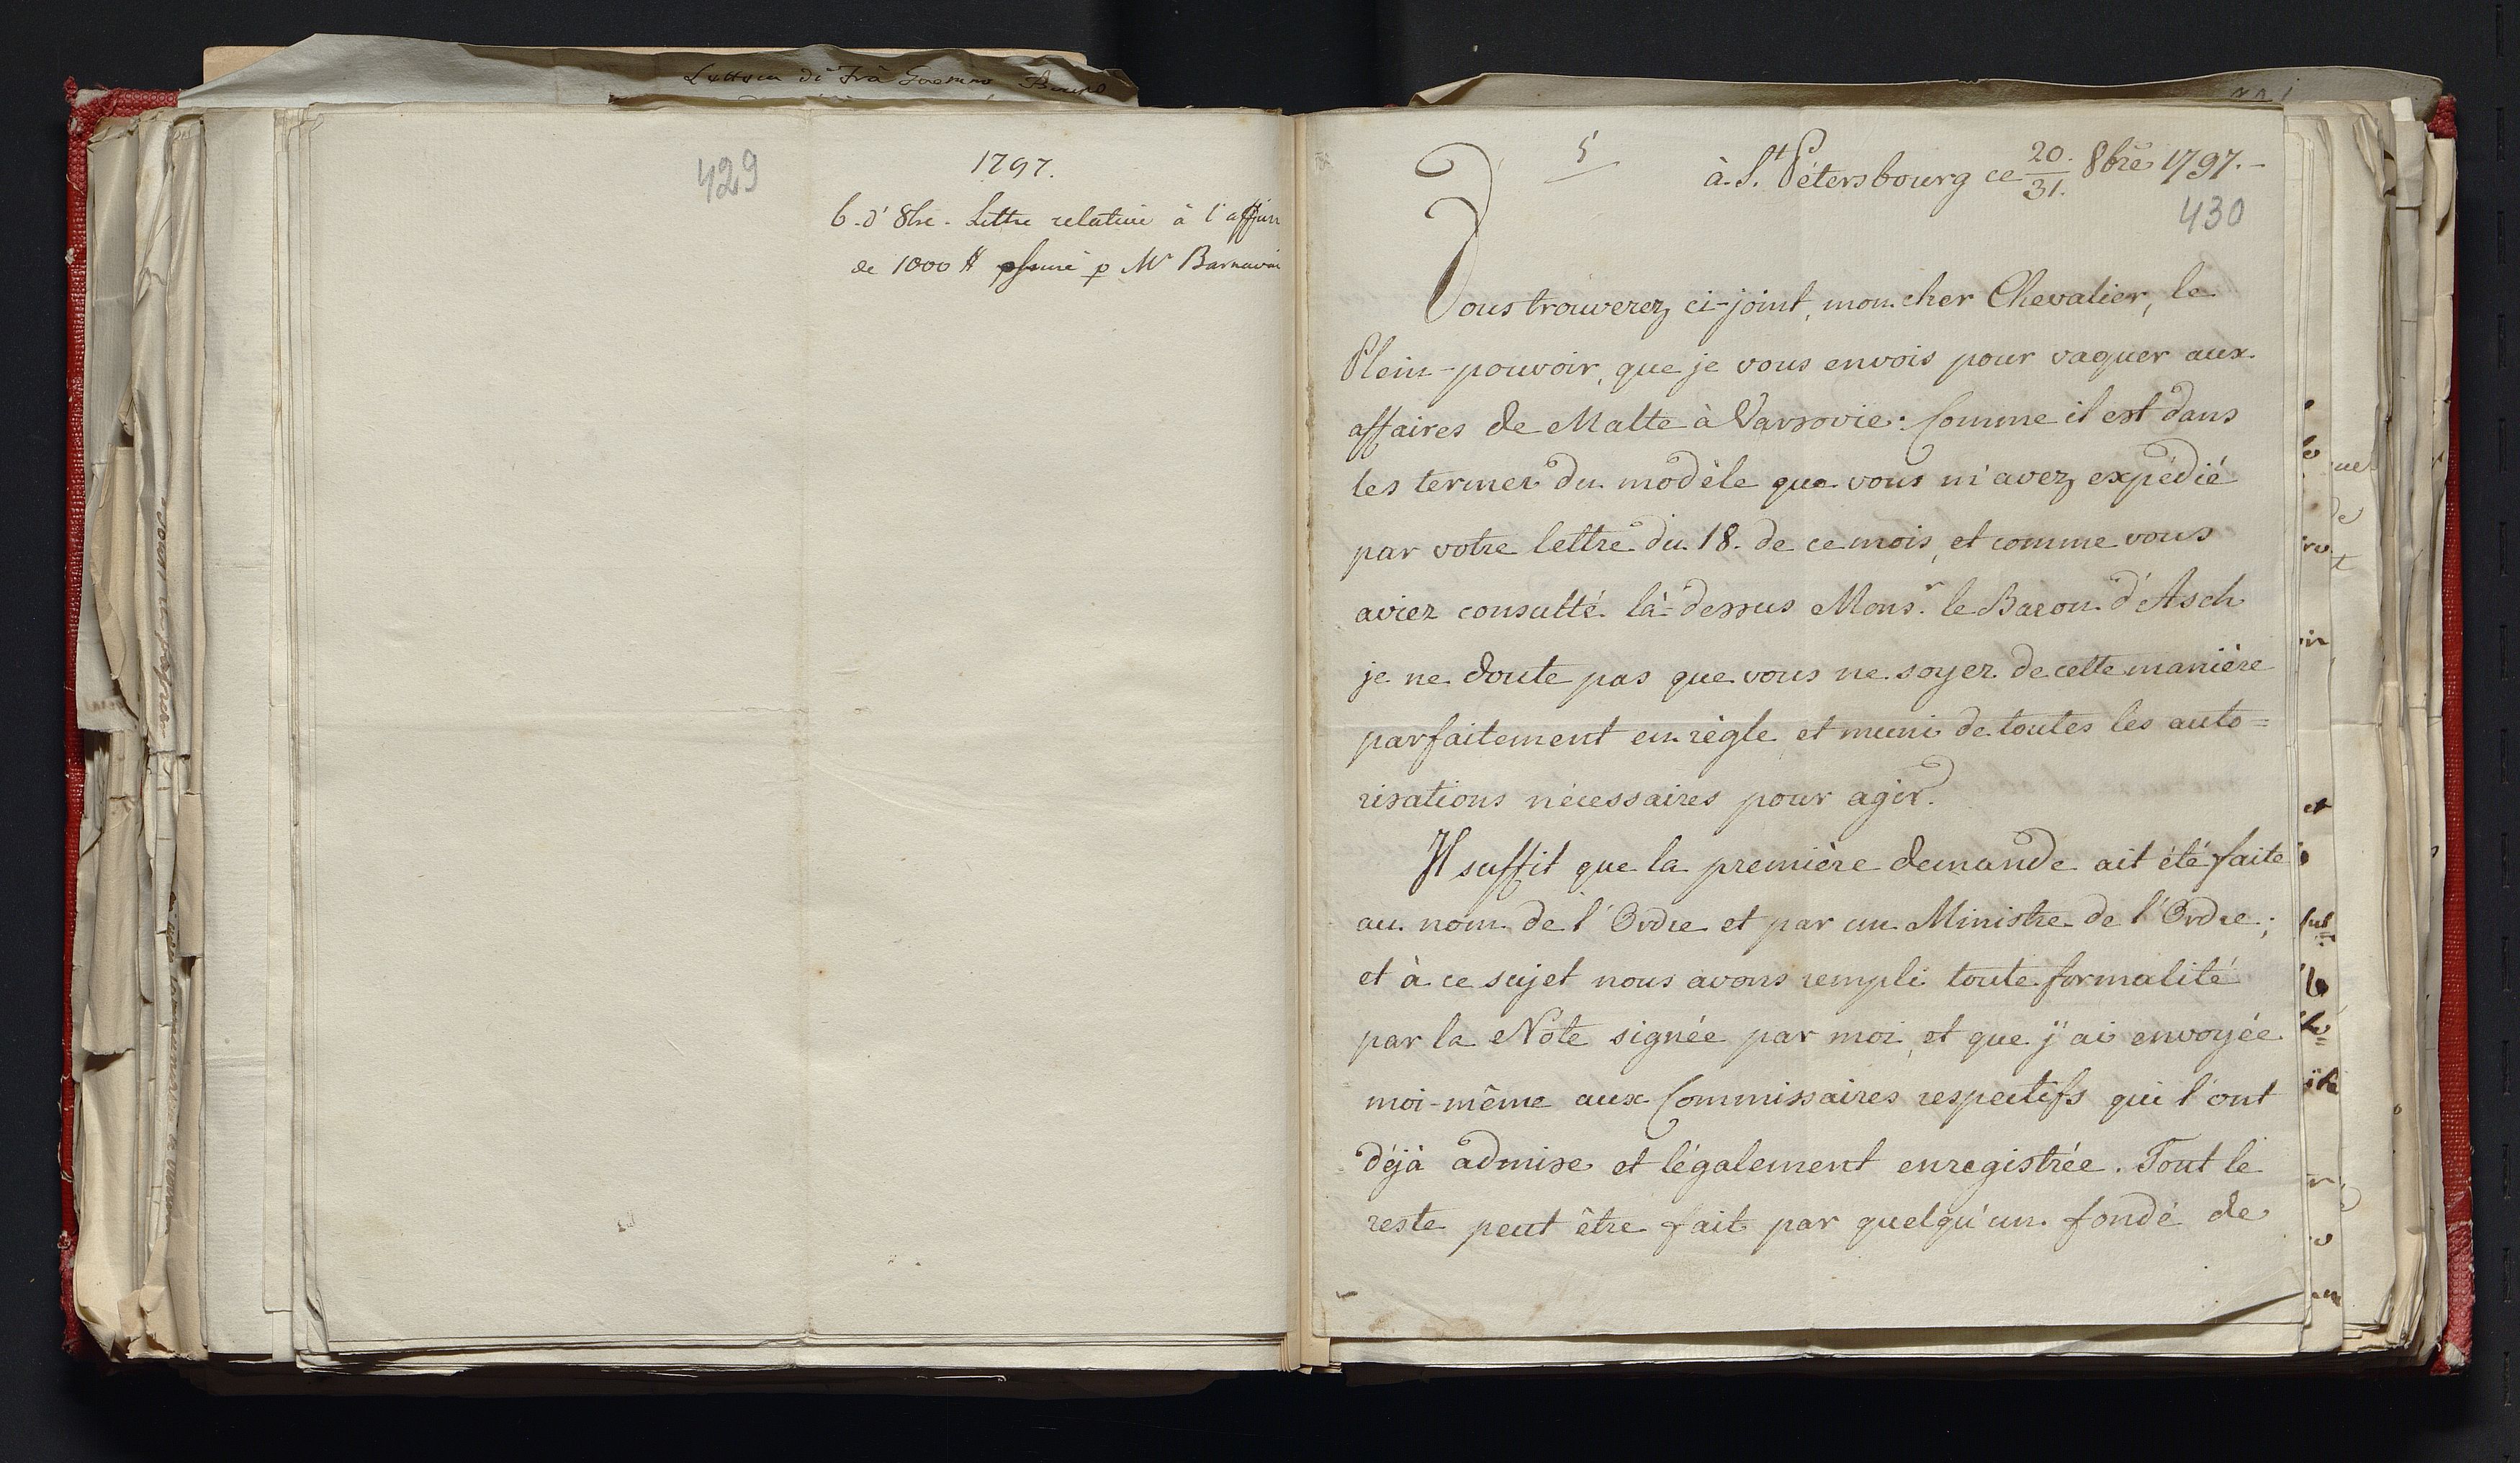 429
1797.
6. d' 8bre. Lettre relative à l'affair
de 1000 # p Mr
5
à St. Pétersbourg ce 20./31. 8bre 1797.-
430
Vous trouverez ci-joint, mon cher Chevalier, le
Plein-pouvoir, que je vous envois pour vaquer aux
affaires de Malte à Varsovie: Comme il est dans
les termes du modèle que vous m'avez expédié
par votre lettre du 18. de ce mois, et comme vous
aviez consulté là-dessus Monsr. le Baron d'Asch
je ne doute pas que vous ne soyez de cette manière
parfaitement en règle et muni de toutes les auto=
risations nécessaires pour agir.
Il suffit que la première demande ait été faite
au nom de l'Ordre et par un Ministre de l'Ordre;
et à ce sujet nous avons rempli toute formalité
par la Note signée par moi, et que j'ai envoyée
moi-même aux Commissaires respectifs qui l'ont
déjà admise et légalement enregistrée. Tout le
reste peut être fait par quelqu'un fondé de